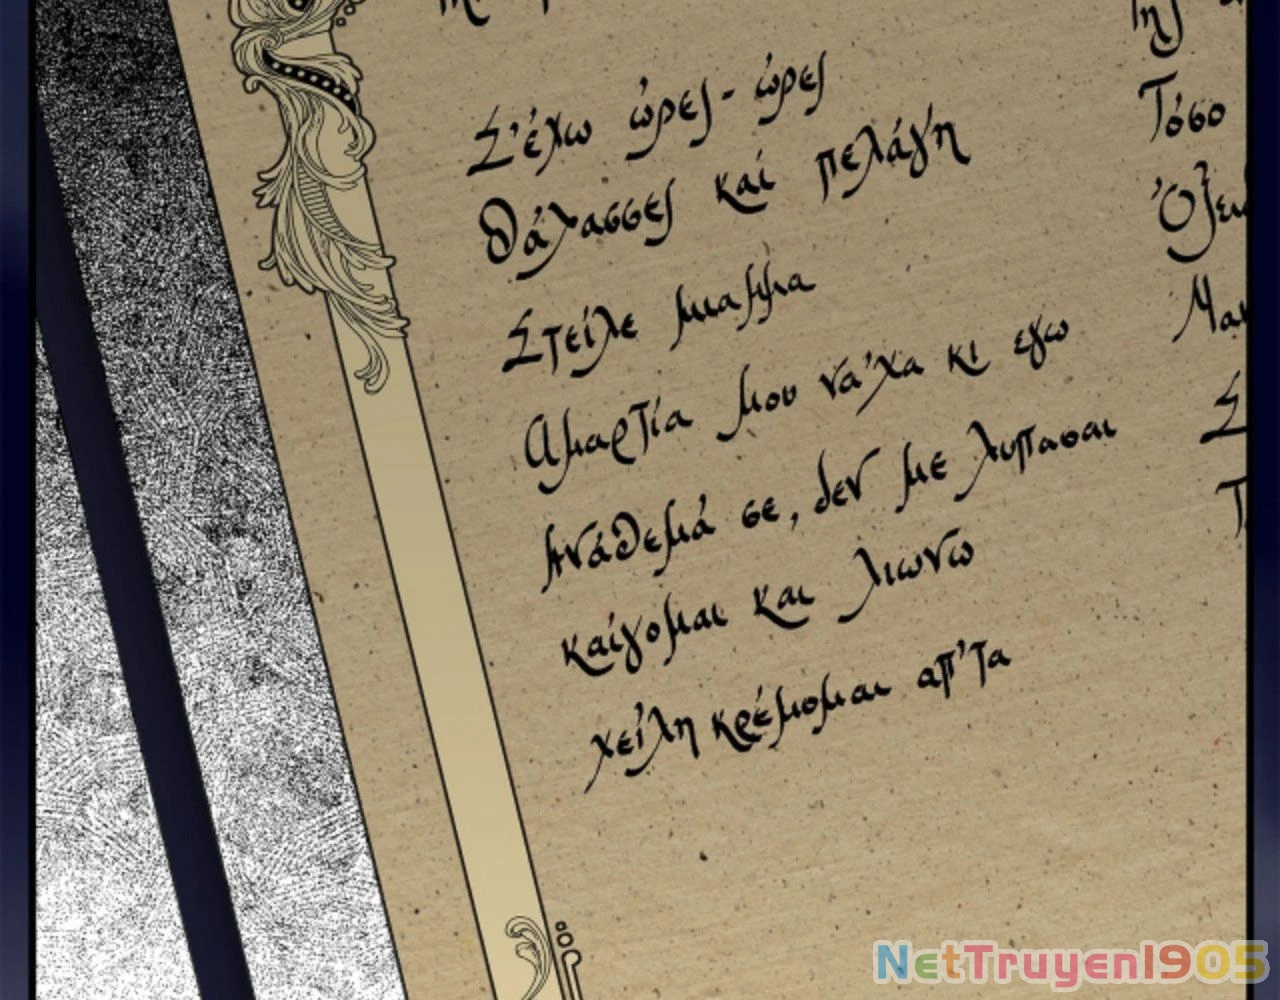 Σ'έχω ώρες-ώρες
θάλασσες και πελάγη
Στείλε μια μμα
Αμαρτία μου νά'χα κι εγω
Ανάθεμά σε, δεν με λυπασαι
καίγομαι και λιωνω
χείλη κρέμομαι απ'τα
Τόσο
NetTruyen1905